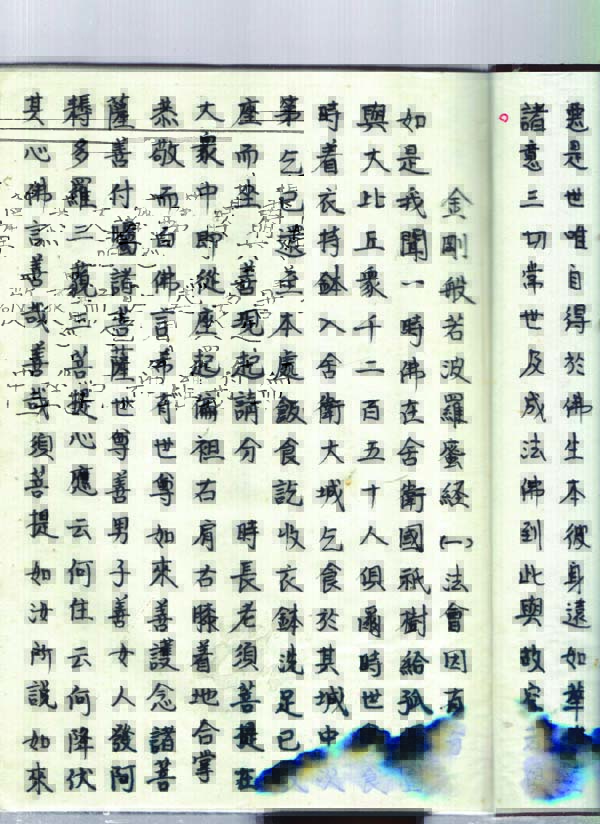 惡是世唯自得於佛生本彼身遠如華
諸意三切常世及成法佛到此與故
金剛般若波羅蜜経(一)法會因
如是我聞一時佛在舍衛國祇樹給孤
與大比丘衆千二百五十人俱爾時世
時着衣持鉢入舍衛大城乞食於其城中
第乞已還至本處飯食訖收衣鉢洗足已
座而坐 善現起請分 時長老須菩提在
大衆中即從座起偏袒右肩右膝着地合掌
恭敬而白佛言希有世尊如來善護念諸菩
薩善付囑諸菩薩世尊善男子善女人發阿
耨多羅三藐三菩提心應云何住云何降伏
其心佛言善哉善哉須菩提如汝所說如來